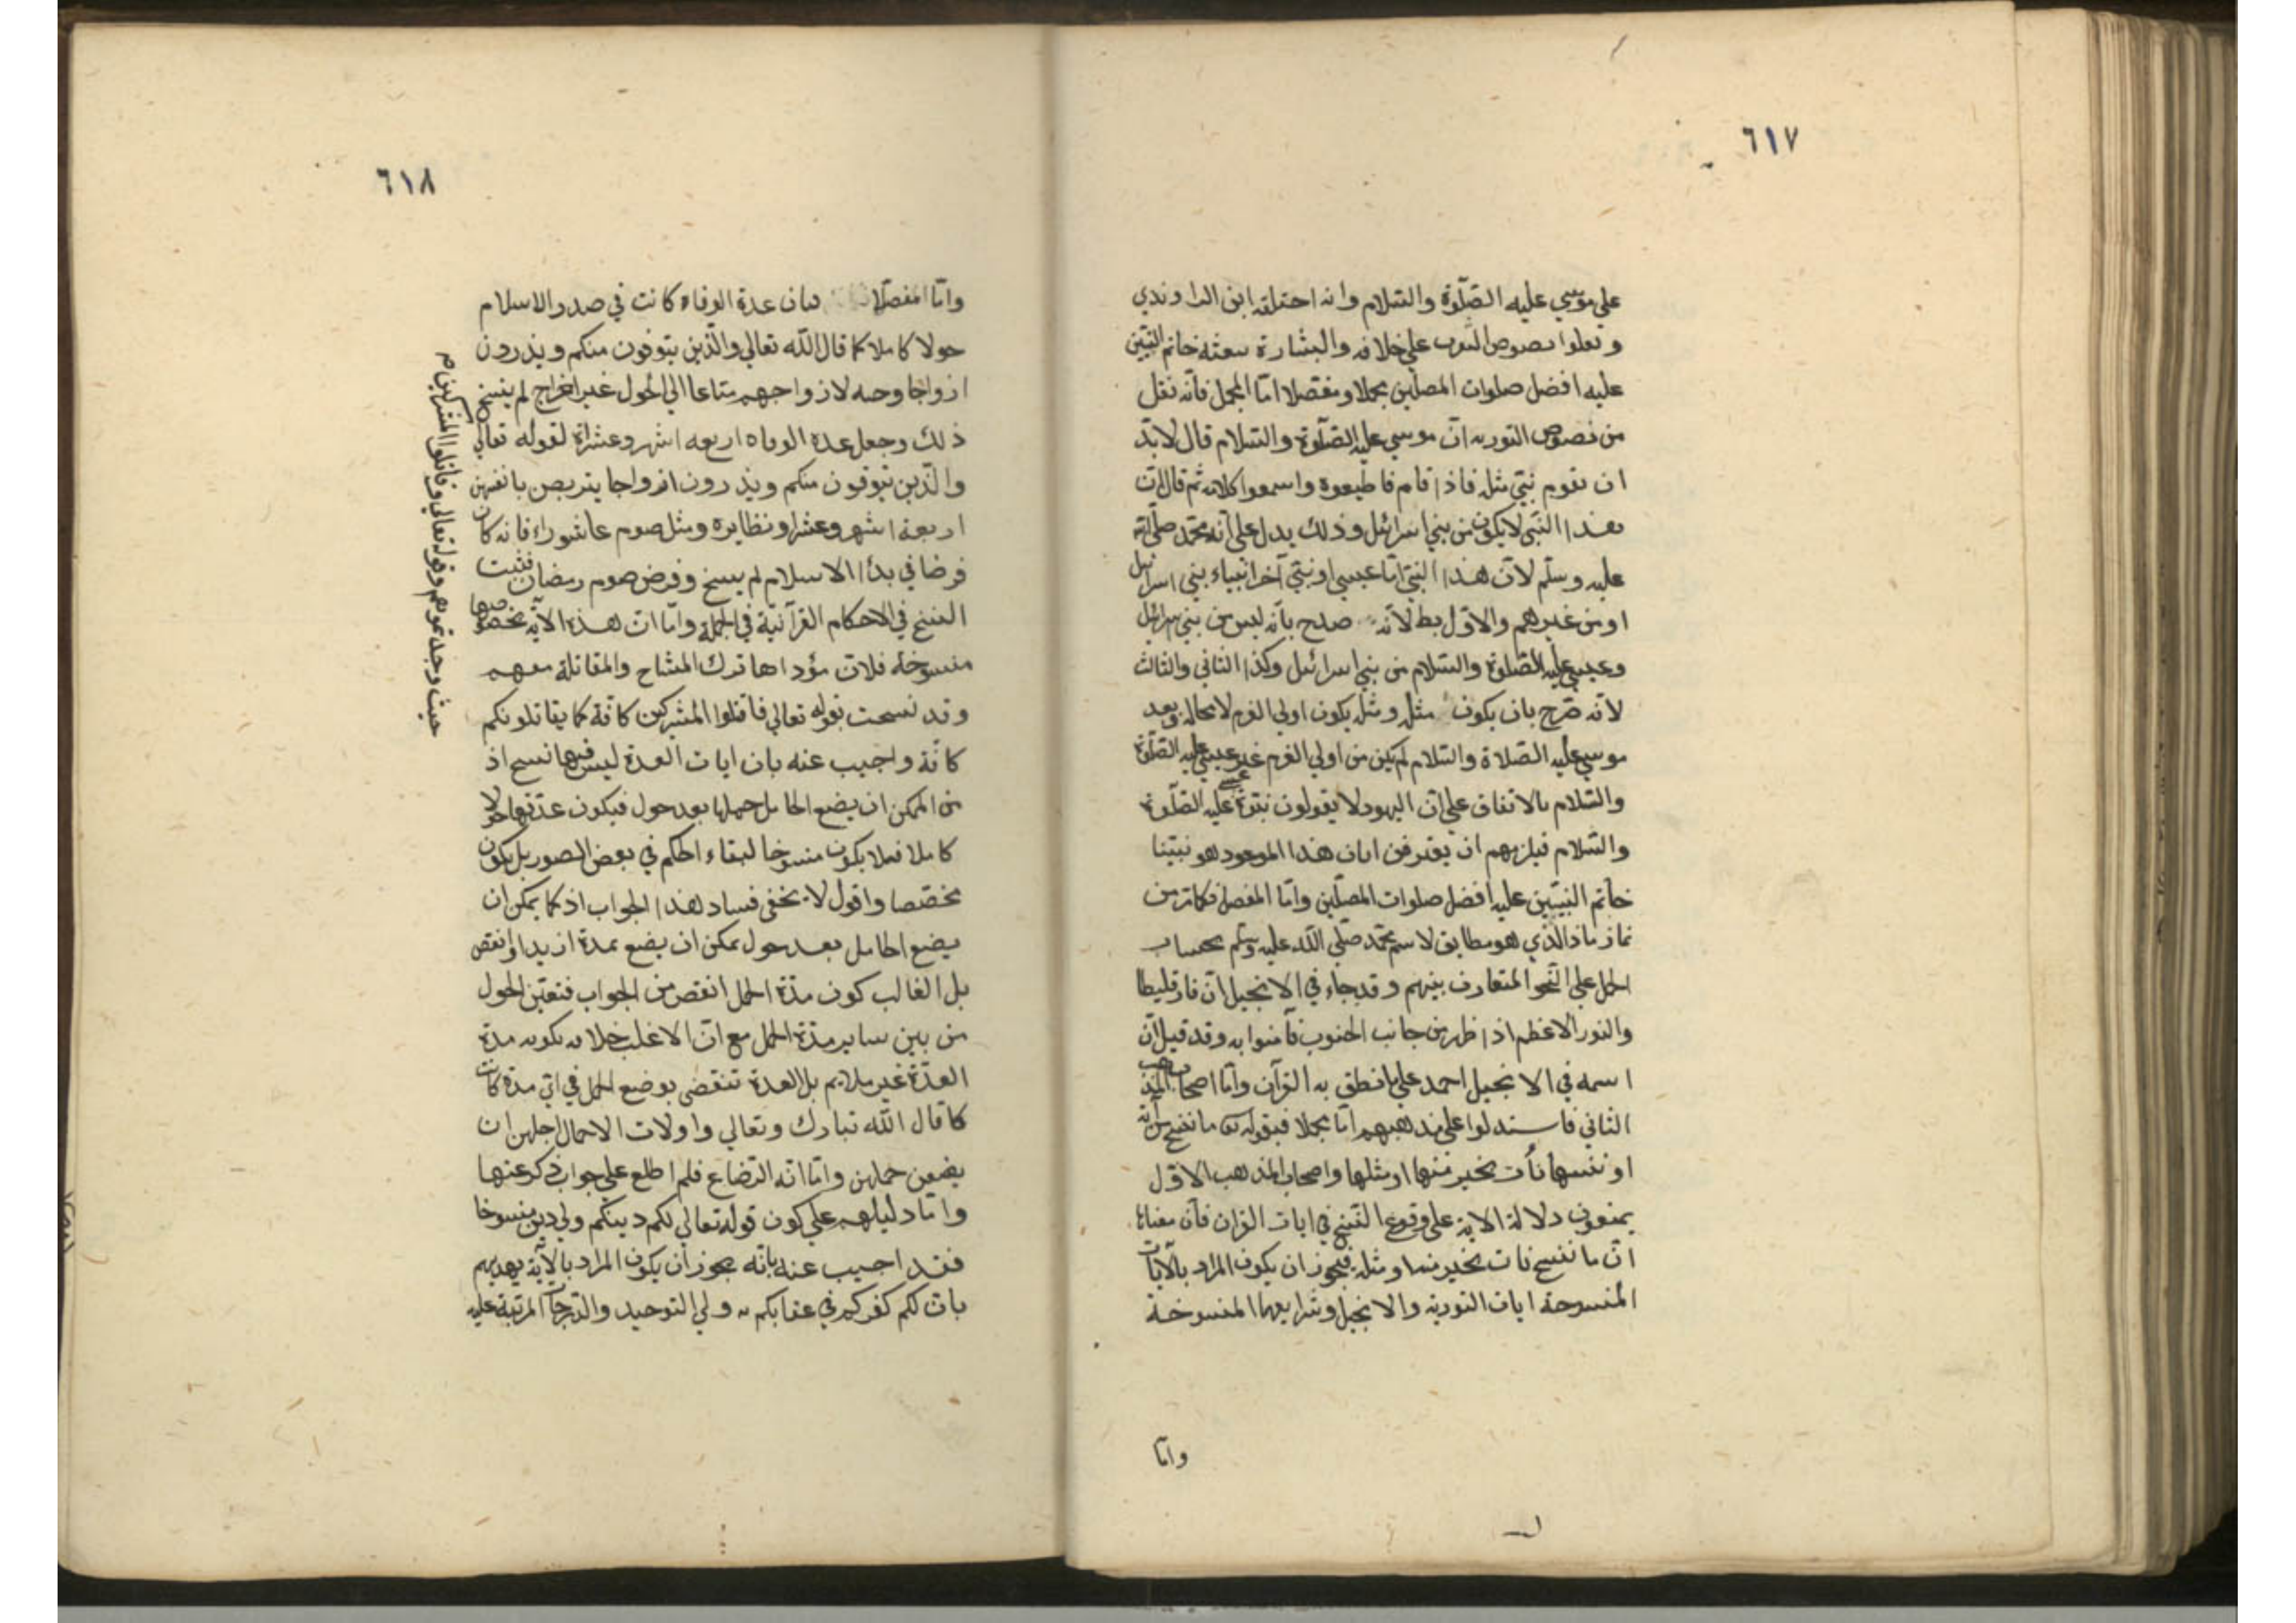 ٦١٧
علي موسي عليه الصلوة والسلام وانه احتلقه ابن الراوندي
ونقلوا نصوص التورية علي خلافه والبشارة ببعثة خاتم النبيين
عليه افضل صلوات المصلين مجملا ومفصلا اما المجمل فانه نقل
من نصوص التورية ان موسي عليه الصلوة والسلام قال لابد
ان تقوم نبي مثلي فاذا قام فاطيعوه واسمعوا كلامه ثم قال ان
هذا النبي لا يكون من بني اسرائيل وذلك يدل علي انه محمد صلي الله
عليه وسلم لان هذا النبي اما عيسي او نبي آخر انبياء بني اسرائيل
او من غيرهم والاول بط لانه صرح بانه ليس من بني اسرائيل
وعيسي عليه الصلوة والسلام من بني اسرائيل وكذا الثاني والثالث
لانه صرح بان يكون مثلي ومثله يكون اولي العزم لا محالة وبعد
موسي عليه الصلاة والسلام لم يكن من اولي العزم غير عيسي عليه الصلوة
والسلام بالاتفاق علي ان اليهود لا يقولون بنبوة عيسي عليه الصلوة
والسلام فيلزمهم ان يعترفن ابان هذا الموعود هو نبينا
خاتم النبيين عليه افضل صلوات المصلين واما المفصل فكما مر من
ماذ ماذ الذي هو مطابق لاسم محمد صلي الله عليه وسلم بحساب
الجمل علي النحو المتعارف بينهم وقد جاء في الانجيل ان فارقليطا
والنور الاعظم اذا ظهر من جانب الجنوب فآمنوا به وقد قيل ان
اسمه في الانجيل احمد علي ما نطق به القرآن واما اصحاب المذهب
الثاني فاستدلوا علي مذهبهم اما مجملا فبقوله تعالى ما ننسخ من آية
او ننسها نأت بخير منها او مثلها واصحاب المذهب الاول
يمنعون دلالة الاية علي وقوع النسخ في ايات القران فان معناها
ان ما ننسخ نات بخير منها ومثله فيجوز ان يكون المراد بالايات
المنسوخة ايات التورية والانجيل وشرايعهما المنسوخة
واما
٦١٨
واما المفصلا فبان عدة الوفاة كانت في صدر الاسلام
حولا كاملا كما قال الله تعالي والذين يتوفون منكم ويذرون
ازواجا وصية لازواجهم متاعا الي الحول غير اخراج ثم ينسخ
ذلك وجعل عدة الوفاة اربعة اشهر وعشراة لقوله تعالي
والذين يتوفون منكم ويذرون ازواجا يتربصن بانفسهن
اربعة اشهر وعشرا ونظايره ومثل صوم عاشوراء فانه كان
فرضا في بدأ الاسلام ثم نسخ وفرض صوم رمضان فثبت
النسخ في الاحكام القرآنية في الجملة واما ان هذه الآية بخصوصها
منسوخة فلان مؤداها ترك المشاح والمقاتلة معهم
وقد نسخت بقوله تعالي فاقتلوا المشركين كافة كما يقاتلونكم
كافة واجيب عنه بان ايات العدة ليس فيها نسخ اذ
من الممكن ان يضع الحامل حملها بعد حول فيكون عدتها حولا
كاملا فلا يكون منسوخا لبقاء الحكم في بعض الصور بل يكون
مخصصا واقول لا يخفى فساد هذا الجواب اذ كما يمكن ان
يضع الحامل بعد حول يمكن ان يضع بمدة ازيد او انقص
بل الغالب كون مدة الحمل انقص من الجواب فتعين الحول
من بين ساير مدة الحمل مع ان الاغلب خلافه بكونه مدة
العدة غير ملايم بل العدة تنقضي بوضع الحمل في اي مدة كانت
كما قال الله تبارك وتعالي واولات الاحمال اجلهن ان
يضعن حملهن واما انه الرضاع فلم اطلع علي جواب ذكر عنها
واما دليلهم علي كون قوله تعالي لكم دينكم ولي دين منسوخا
فقد اجيب عنه بانه يجوز ان يكون المراد بالآية تهديهم
بان لكم كفركم في عقابكم به ولي التوحيد والدرجات المرتبة عليه
حيث وجدتموهم وقوله تعالي وقاتلوا المشركين م